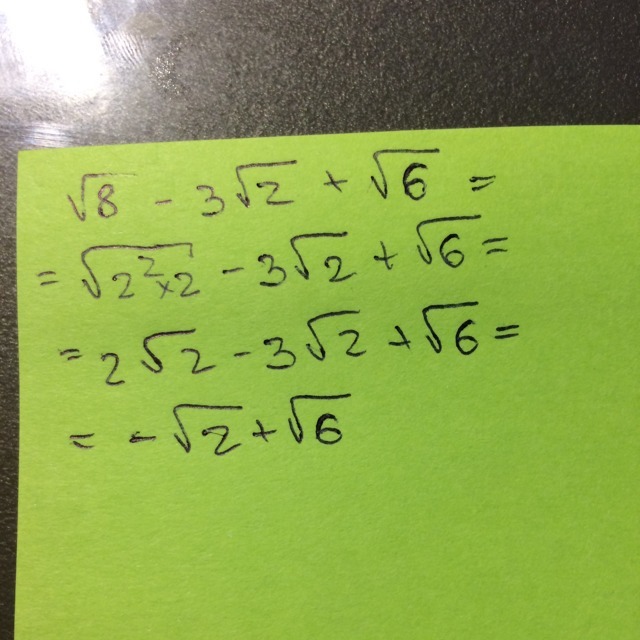 √8 - 3√2 + √6 =
= √2²×2 - 3√2 + √6 =
= 2√2 - 3√2 + √6 =
= -√2 + √6